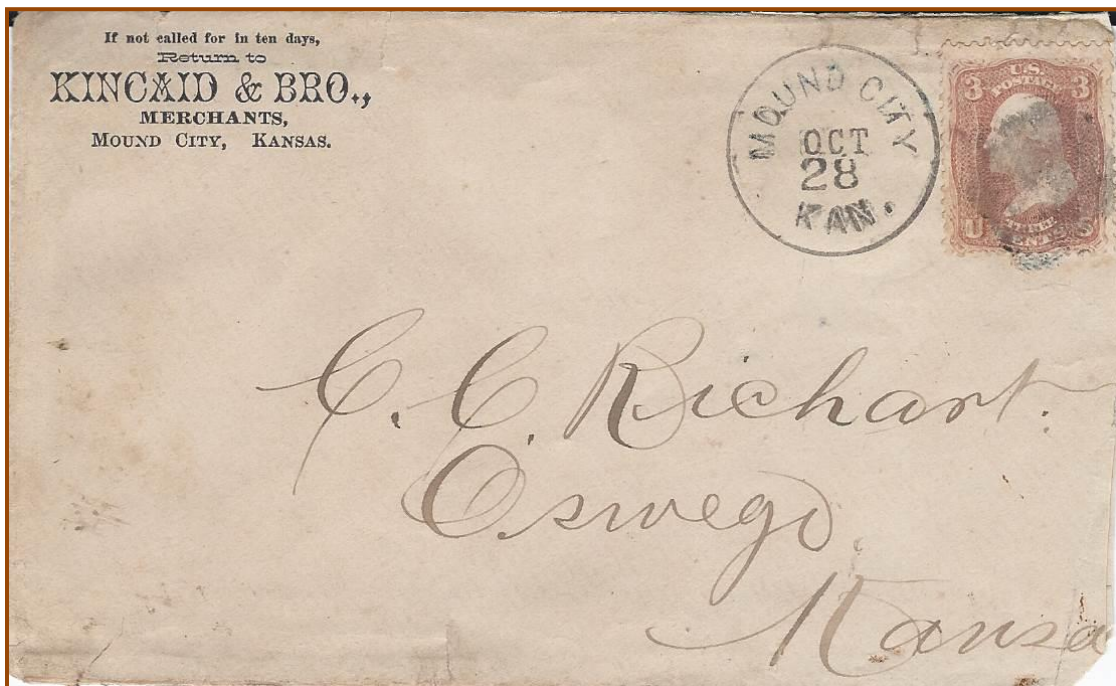 If not called for in ten days,
Return to
KINCAID & BRO.,
MERCHANTS,
MOUND CITY, KANSAS.
MOUND CITY
OCT
28
KAN.
3 U.S. 3
POSTAGE
U
CENTS
C. C. Richart.
Oswego
Kansa